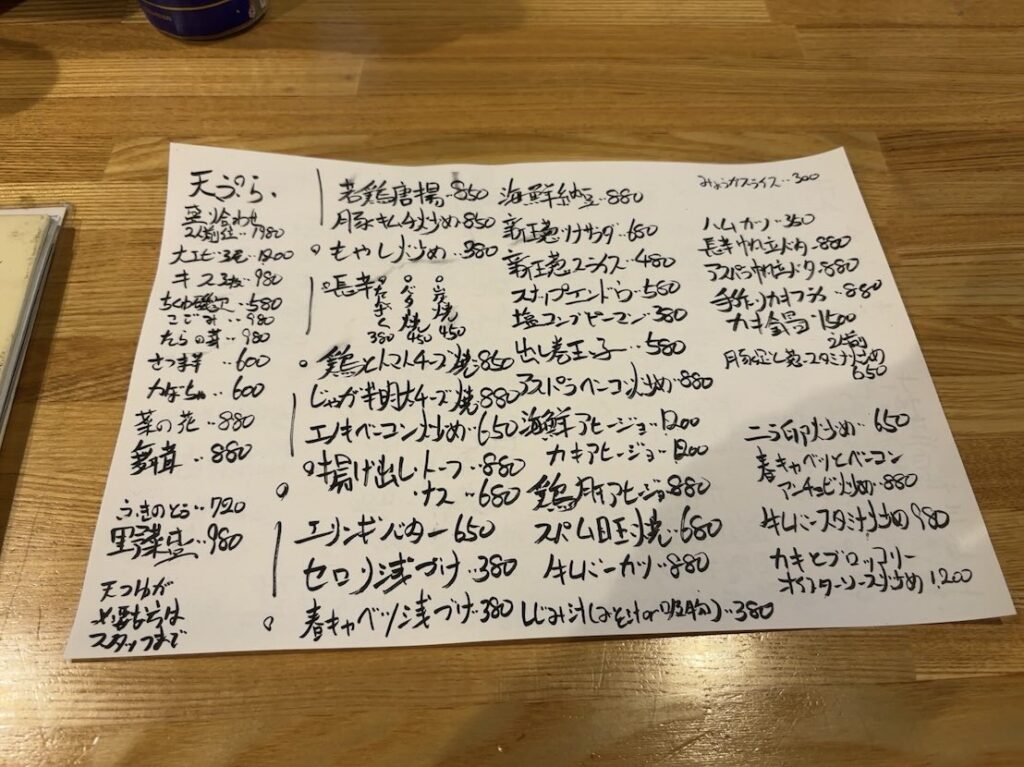 天ぷら.
盛り合わせ
2人前位‥1980
大エビ3毛‥1200
キス3枚‥980
ちくわ磯辺‥580
こごみ‥980
たらの芽‥980
さつま芋‥600
かぼちゃ‥600
菜の花‥880
舞茸‥880
ふきのとう‥720
野菜盛‥980
天つゆが
必要な方は
スタッフまで
若鶏唐揚‥850
月豚キムチ炒め‥850
もやし炒め‥380
長芋
たんざく 380
バター焼 450
炭焼 450
鶏とトマトチーズ焼‥850
じゃが明太チーズ焼‥880
エノキベーコン炒め‥650
揚げ出し・トーフ‥880
・ナス‥680
エリンギバター‥650
セロリ浅づけ‥380
春キャベツ浅づけ‥380
海鮮納豆‥880
新玉葱ツナサラダ‥650
新玉葱スライス‥480
スナップエンドウ‥580
塩コンブピーマン‥380
出し巻玉子‥580
アスパラベーコン炒め‥880
海鮮アヒージョ‥1200
カキアヒージョ‥1200
鶏月干アヒージョ‥880
スパム目玉焼‥680
牛レバーカツ‥880
しじみ汁(みそ汁or
)‥380
みょうがスライス‥300
ハムカツ‥350
長芋
バター‥880
アスパラ
バター‥880
手作りカキフライ‥880
カキ鍋‥1500
2人前
スタミナ炒め
650
ニラ卵炒め‥650
春キャベツとベーコン
アンチョビ炒め‥880
牛レバースタミナ炒め‥980
カキとブロッコリー
オイスターソース炒め‥1,200